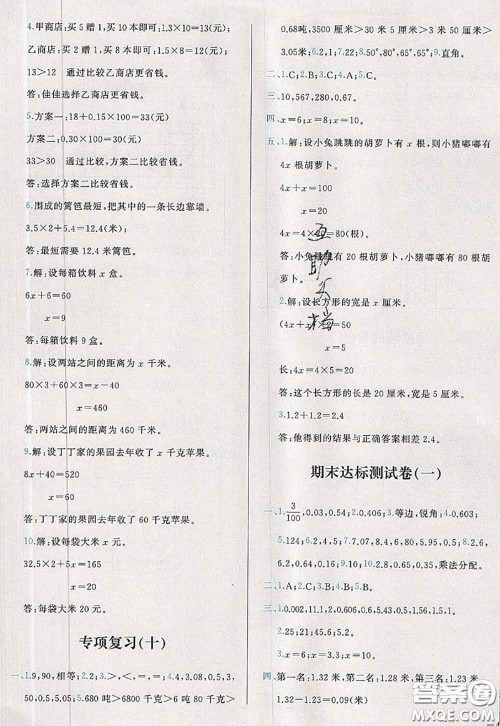 4.甲商店:买 5 赠 1,买 10 本即可:1.3×10=13(元)
乙商店:买 10 本即可:1.2×10=12(元)
13>12　通过比较乙商店更省钱。
答:佳佳选择乙商店更省钱。
5.方案一:18+0.15×100=33(元)
方案二:0.30×100=30(元)
33>30　通过比较方案二比较省钱。
答:选择方案二比较省钱。
6.围成的篱笆最短,把其中的一条长边靠墙。
3.5×2+5.4=12.4(米)
答:最短需要 12.4 米篱笆。
7.解:设每箱饮料 x 盒。
6x+6=60
x=9
答:每箱饮料 9 盒。
8.解:设两站之间的距离为 x 千米。
80×3+60×3=x-40
x=460
答:两站之间的距离为 460 千米。
9.解:设丁丁家的果园去年收了 x 千克苹果。
8x+40=520
x=60
答:丁丁家的果园去年收了 60 千克苹果。
10.解:设每袋大米 x 元。
32.5×2+5x=165
x=20
答:每袋大米 20 元。
专项复习(十)
一、1.9,90,相等;2.>,<,=,=;3.4,3.08,0.5,3.
50,0.5,5.05;5.680 吨>6800 千克>6 吨 80 千克>
0.68吨,3500 厘米>30 米 5 厘米>3 米 5 厘米>
3.05米;6.30;7.60°,60°;8.65°,45°;9.5;10.直角。
二、1.C;2.B;3.C;4.A;5.C。
三、10,567,280,0.67。
四、x=6;x=8;x=3。
五、1.解:设小兔跳跳的胡萝卜有 x 根,则小猪嘟嘟有
4x 根胡萝卜。
4x+x=100
x=20
4x=4×20=80(根)
答:小兔跳跳有 20 根胡萝卜,小猪嘟嘟有 80 根胡
萝卜。
2.解:设长方形的宽是 x 厘米。
(4x+x)×2=50
x=5
长:4x=4×5=20
答:这个长方形的长是 20 厘米,宽是 5 厘米。
3.1.2+1.2=2.4
答:他得到的结果与正确答案相差 2.4。
期末达标测试卷(一)
一、1.3/100,0.03,0.54,0.054;2.>;3.等边,锐角;4.0.603;
二、1.A;2.B;3.C;4.C;5.C。
四、第一名:1.32 米,第二名:1.27 米,第三名:1.23 米
1.32-1.23=0.09(米)
答案圈
MXQE.COM